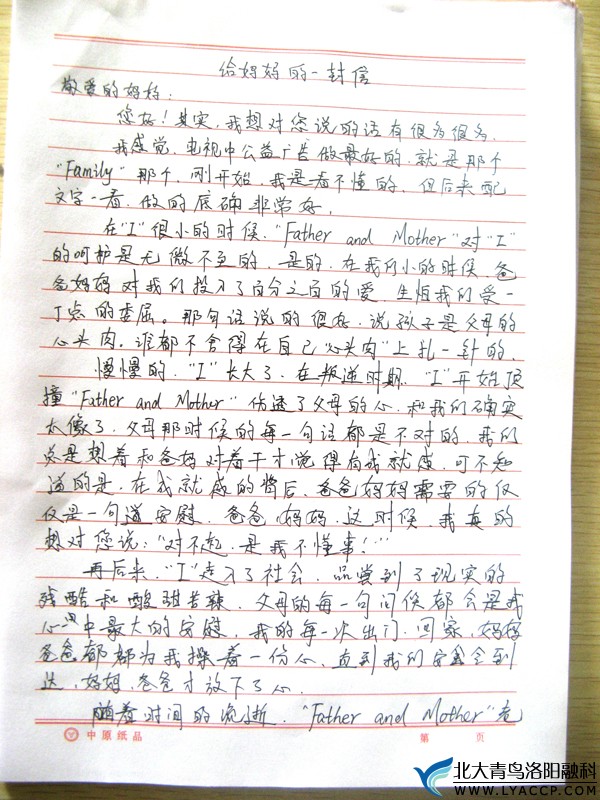 给妈妈的一封信
敬爱的妈妈:
您好!其实,我想对您说的话有很多很多.
我感觉,电视中公益广告做最好的,就是那个
"Family"那个,刚开始,我是看不懂的,但后来配
文字一看,做的底确非常好,
在"I"很小的时候,"Father and Mother"对"I"
的呵护是无微不至的,是的,在我们小的时候,爸
爸妈妈对我们投入了百分之百的爱,生怕我们受一
丁点的委屈。那句话说的很好,说孩子是父母的
心头肉,谁都不舍得在自己"心头肉"上扎一针的,
慢慢的,"I"长大了,在叛逆时期,"I"开始顶
撞"Father and Mother"伤透了父母的心,和我们确实
太像了,父母那时候的每一句话都是不对的,我们
总是想着和爸妈对着干才觉得有成就感,可不知
道的是,在成就感的背后,爸爸妈妈需要的仅
仅是一句道安慰,爸爸,妈妈,这时候,我真的
想对您说:"对不起,是我不懂事!"
再后来,"I"走入了社会,品尝到了现实的
残酷和酸甜苦辣,父母的每一句问候都会是我
心中最大的安慰,我的每一次出门,回家,妈妈
爸爸都都为我操着一份心,直到我们安全到
达,妈妈,爸爸才放下了心.
随着时间的流逝,"Father and Mother"老
中原纸品
第 页
北大青鸟洛阳融科
WWW.LYACCP.COM